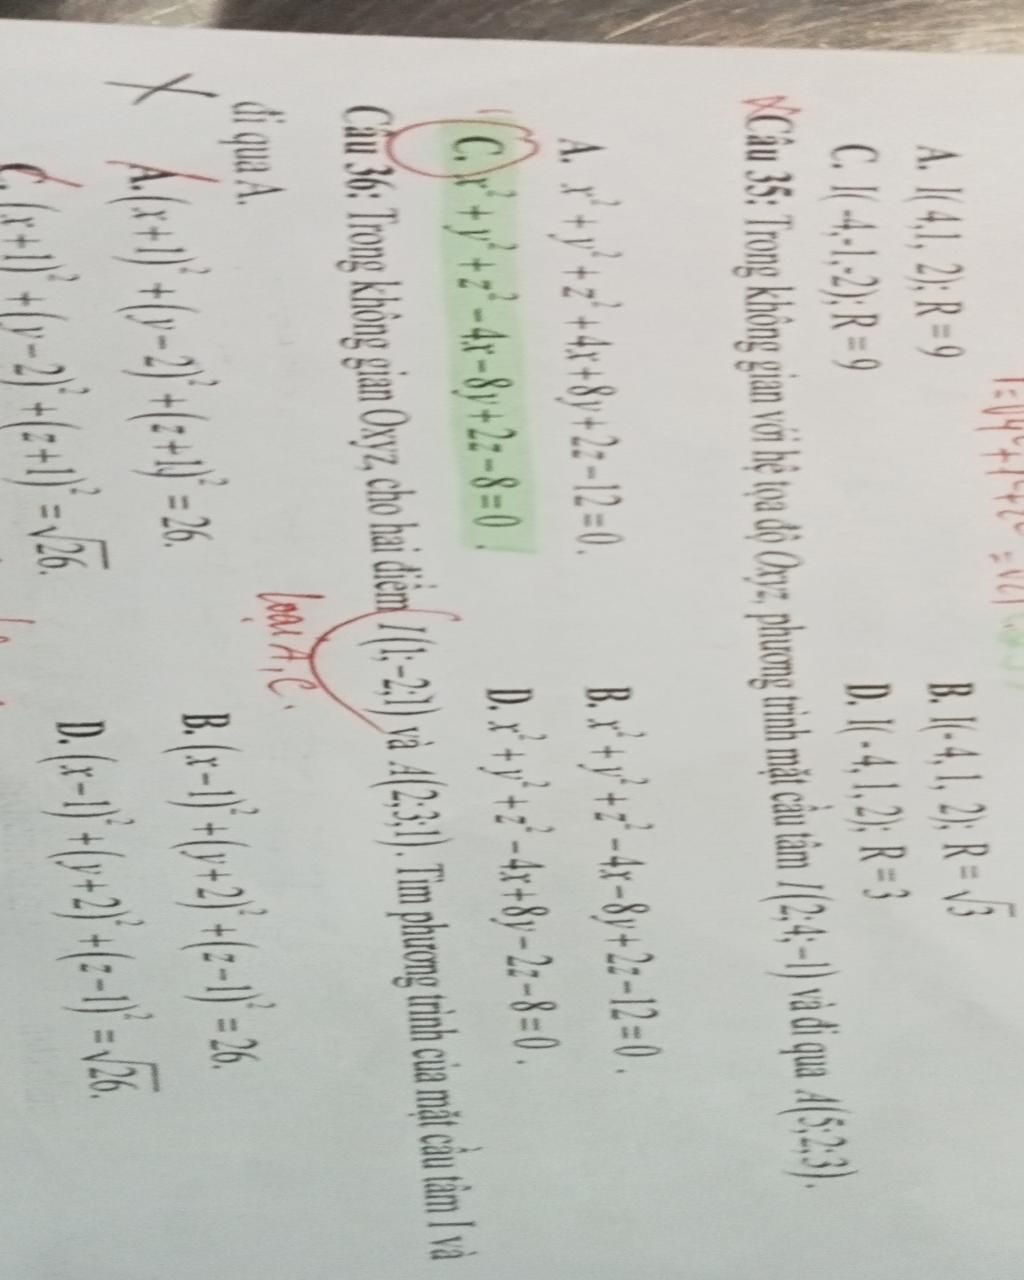 A. I(4,1, 2); R = 9 B. I(-4, 1, 2); R = √3
C. I( -4,-1,-2); R = 9 D. I( -4, 1, 2); R = 3
Câu 35: Trong không gian với hệ tọa độ Oxyz, phương trình mặt cầu tâm I(2;4;−1) và đi qua A(5;2;3).
A. x² + y² + z² + 4x + 8y + 2z − 12 = 0. B. x² + y² + z² − 4x − 8y + 2z − 12 = 0.
C. x² + y² + z² − 4x − 8y + 2z − 8 = 0. D. x² + y² + z² − 4x + 8y − 2z − 8 = 0.
Câu 36: Trong không gian Oxyz, cho hai điểm I(1;−2;1) và A(2;3;1). Tìm phương trình của mặt cầu tâm I và
đi qua A.
loại A, C.
A. (x+1)² + (y−2)² + (z+1)² = 26. B. (x−1)² + (y+2)² + (z−1)² = 26.
C. (x+1)² + (y−2)² + (z+1)² = √26. D. (x−1)² + (y+2)² + (z−1)² = √26.